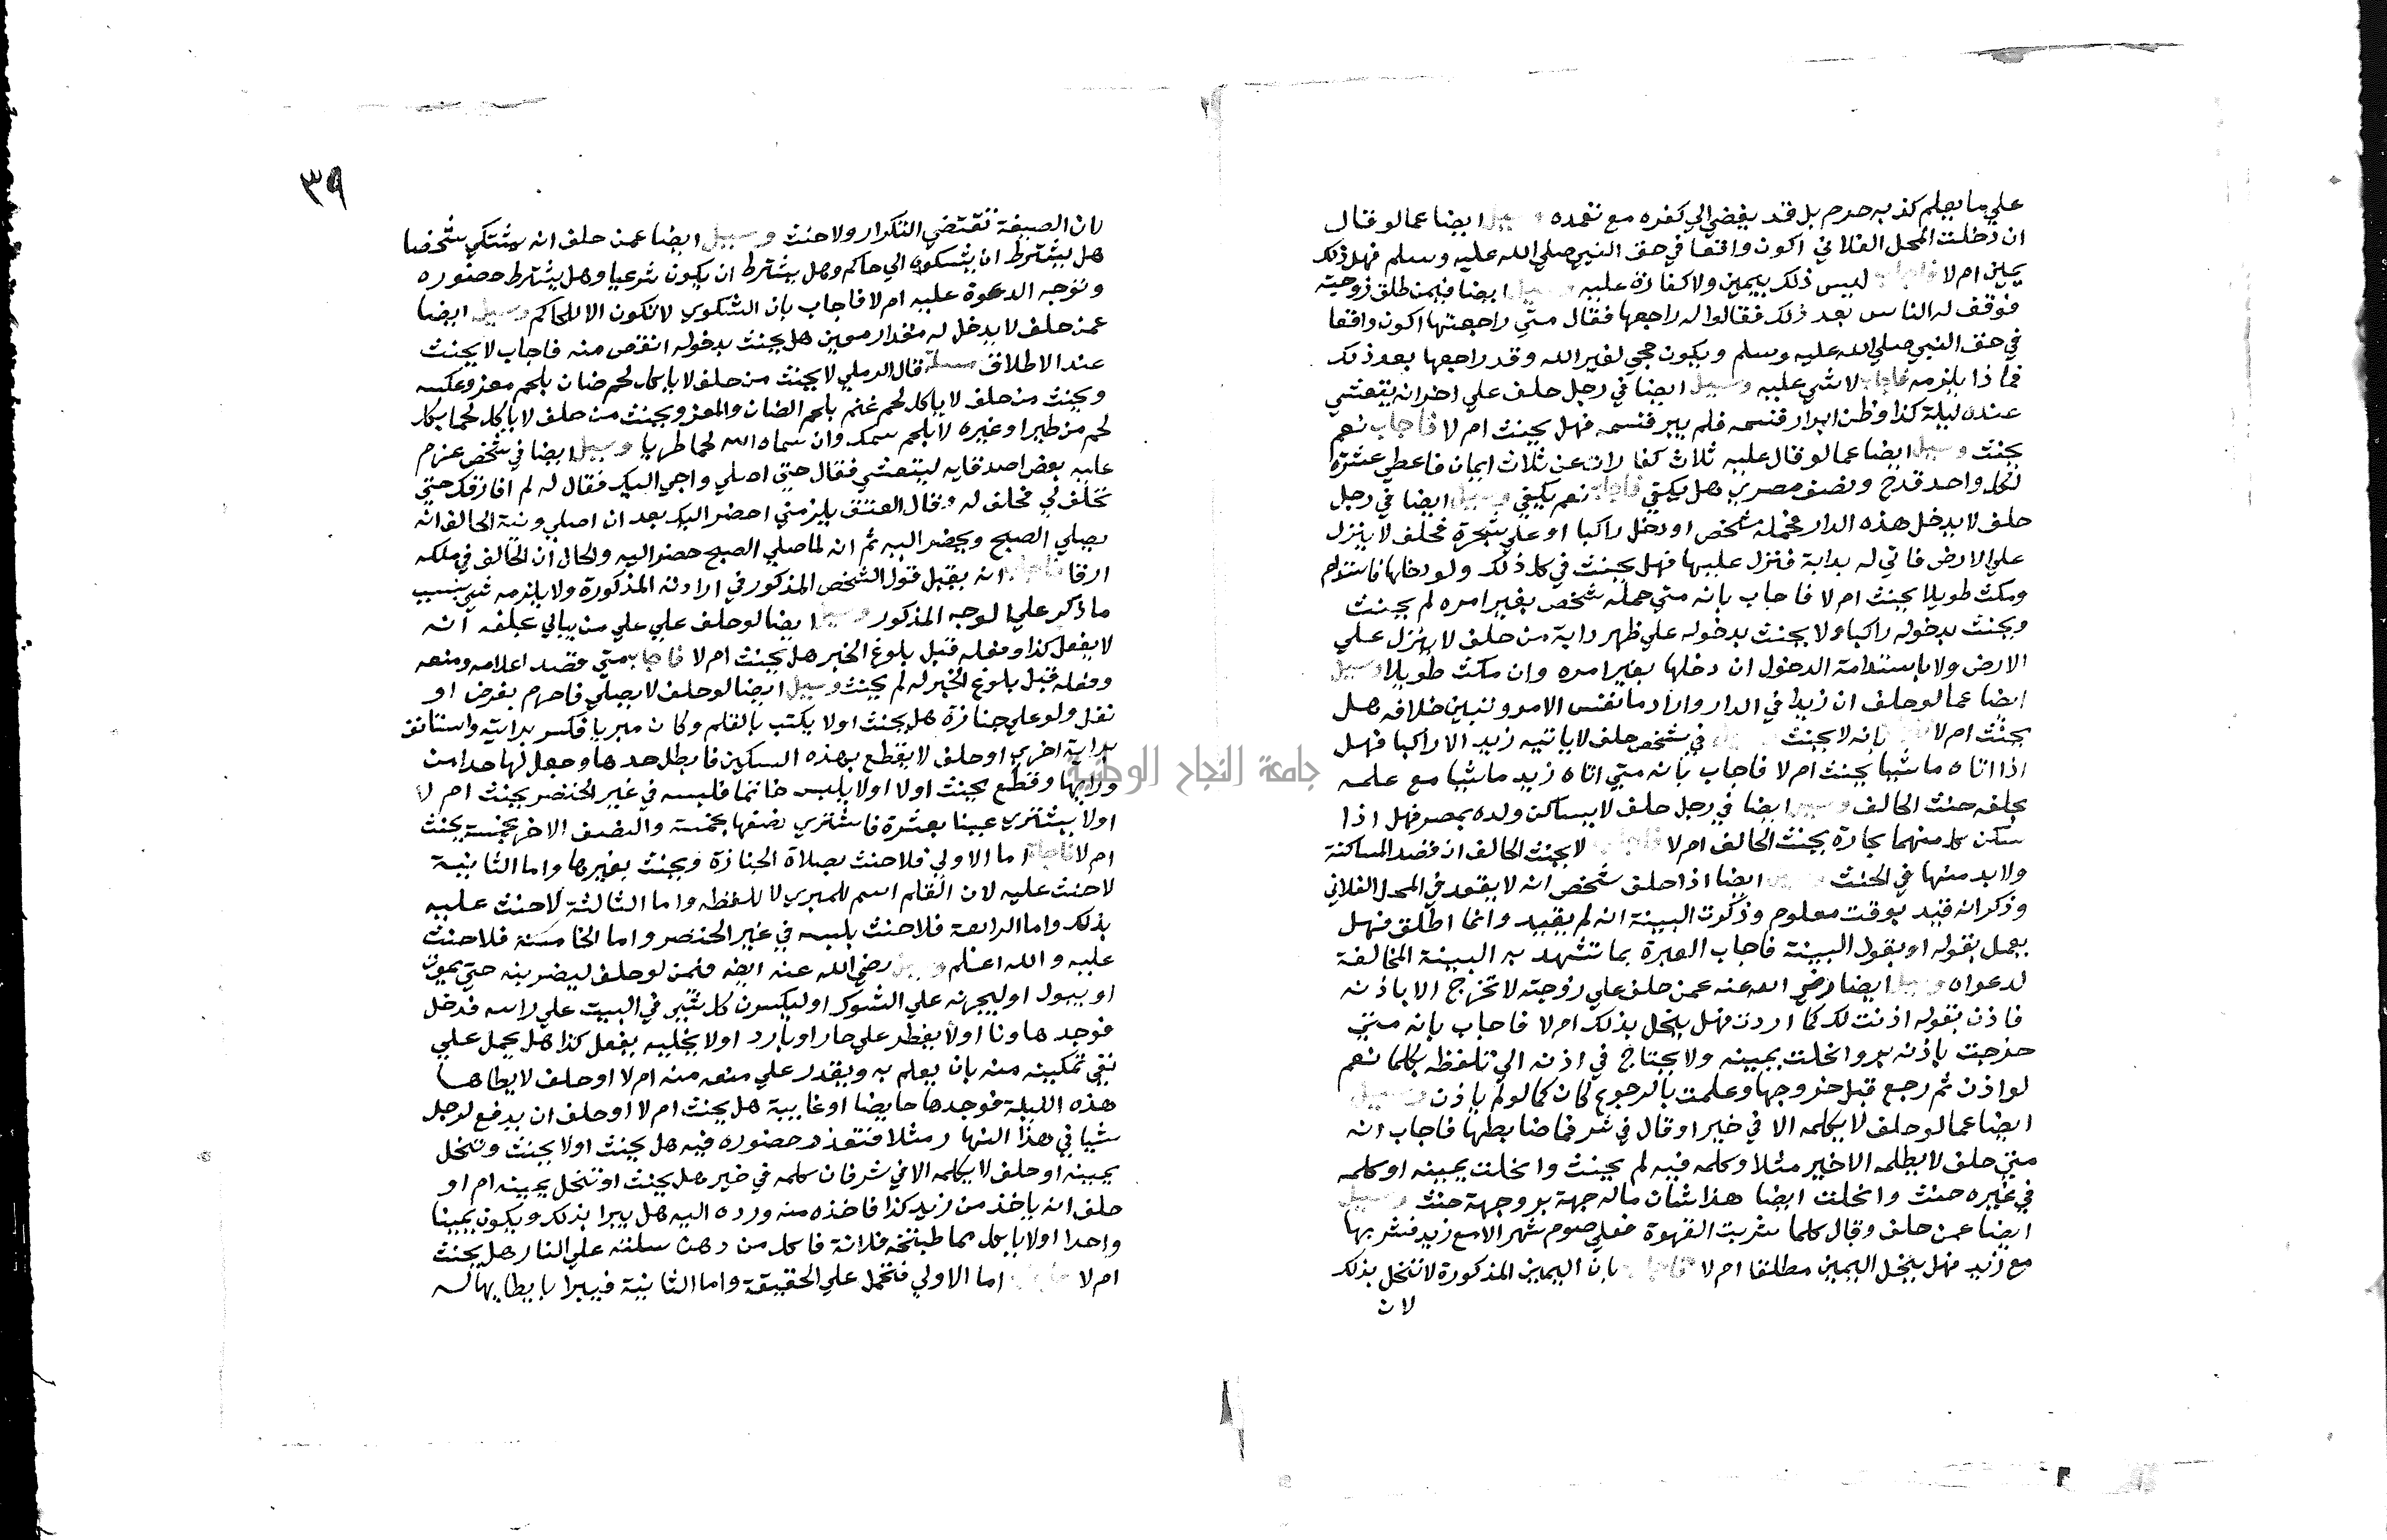 علي ما يعلم كذبه حرم بل قد يفضي الي كفره مع تعمده وسيل ايضا عما لو قال
ان دخلت المحل الفلاني اكون واقعا في حق النبي صلي الله عليه وسلم فهل ذلك
يمين ام لا فاجاب ليس ذلك بيمين ولا كفارة عليه وسيل ايضا فيمن طلق زوجته
فوقف له الناس بعد ذلك فقالوا له راجعها فقال متي راجعتها اكون واقعا
في حق النبي صلي الله عليه وسلم ويكون حجي لغير الله وقد راجعها بعد ذلك
فماذا يلزمه فاجاب لا شي عليه وسيل ايضا في رجل حلف علي اخر انه يتعشي
عنده ليلة كذا وظن ابرار قسمه فلم يبر قسمه فهل يحنث ام لا فاجاب نعم
يحنث وسيل ايضا عما لو قال عليه ثلاث كفارات عن ثلاث ايمان فاعطي عشرة
لكل واحد قدح ونصف مصري هل يكفي فاجاب نعم يكفي وسيل ايضا في رجل
حلف لا يدخل هذه الدار فحمله شخص او دخل راكبا او علي شجرة فحلف لا ينزل
علي الارض فاتي له بدابة فنزل عليها فهل يحنث في كل ذلك ولو دخلها فاستدام
ومكث طويلا يحنث ام لا فاجاب بانه متي حمله شخص بغير امره لم يحنث
ويحنث بدخوله راكبا ولا يحنث بدخوله علي ظهر دابة من حلف لا ينزل علي
الارض ولا باستدامة الدخول ان دخلها بغير امره وان مكث طويلا وسيل
ايضا عما لو حلف ان زيدا في الدار واراد ما نفس الامر وتبين خلافه هل
يحنث ام لا بانه لا يحنث في شخص حلف لا ياتيه زيد الا راكبا فهل
اذا اتاه ماشيا يحنث ام لا فاجاب بانه متي اتاه زيد ماشيا مع علمه
بحلفه حنث الحالف وسيل ايضا في رجل حلف لا يساكن ولده بمصر فهل اذا
سكن كل منهما بحارة يحنث الحالف ام لا فاجاب لا يحنث الحالف ان قصد المساكنة
ولا بد منها في الحنث ايضا اذا حلف شخص انه لا يقعد في المحل الفلاني
وذكر انه قيد بوقت معلوم وذكرت البينة انه لم يقيد وانما اطلق فهل
يعمل بقوله او بقول البينة فاجاب العبرة بما تشهد به البينة المخالفة
لدعواه وسيل ايضا رضي الله عنه عمن حلف علي زوجته لا تخرج الا باذنه
فاذن بقوله اذنت لك كما اردت فهل ينحل بذلك ام لا فاجاب بانه متي
خرجت باذنه بر وانحلت يمينه ولا يحتاج في اذنه الي تلفظه بكلما نعم
لو اذن ثم رجع قبل خروجها وعلمت بالرجوع كان كما لو لم ياذن وسيل
ايضا عما لو حلف لا يكلمه الا في خير او قال في شر فما ضابطها فاجاب انه
متي حلف لا يكلمه الا خير مثلا وكلمه فيه لم يحنث وانحلت يمينه او كلمه
في غيره حنث وانحلت ايضا هذا شان ماله جهة بر وجهة حنث وسيل
ايضا عمن حلف وقال كلما شربت القهوة فعلي صوم شهر الا مع زيد فشربها
مع زيد فهل ينحل اليمين مطلقا ام لا فاجاب بان اليمين المذكورة لا تنحل بذلك
لان
٣٩
لان الصيغة تقتضي التكرار ولا حنث وسيل ايضا عمن حلف انه يشتكي شخصا
هل يشترط ان يشكوه الي حاكم وهل يشترط ان يكون شرعيا وهل يشترط حضوره
وتوجه الدعوة عليه ام لا فاجاب بان الشكوي لا تكون الا للحاكم وسيل ايضا
عمن حلف لا يدخل له مقدار معين هل يحنث بدخوله انقص منه فاجاب لا يحنث
عند الاطلاق مسلة قال الرملي لا يحنث من حلف لا ياكل لحم ضان بلحم معز وعكسه
ويحنث من حلف لا ياكل لحم غنم بلحم الضان والمعز ويحنث من حلف لا ياكل لحما بكل
لحم من طير او غيره لا بلحم سمك وان سماه الله لحما طريا وسيل ايضا في شخص عزم
عليه بعض اصدقايه ليتعشي فقال حتي اصلي واجي اليك فقال له لم افارقك حتي
تحلف لي فحلف له وقال العتق يلزمني احضر اليك بعد ان اصلي ونية الحالف انه
يصلي الصبح ويحضر اليه ثم انه لما صلي الصبح حضر اليه والحال ان الحالف في ملكه
ارقا فاجاب انه يقبل قول الشخص المذكور في ارادته المذكورة ولا يلزمه شي بسبب
ما ذكر علي الوجه المذكور وسيل ايضا لو حلف علي علي من يبالي بحلفه انه
لا يفعل كذا وفعله قبل بلوغ الخبر هل يحنث ام لا فاجاب متي قصد اعلامه ومنعه
وفعله قبل بلوغ الخبر له لم يحنث وسيل ايضا لو حلف لا يصلي فاحرم بفرض او
نفل ولو علي جنازة هل يحنث اولا يكتب بالقلم وكان مبريا فكسر برايته واستانف
براية اخري او حلف لا يقطع بهذه السكين فابطل حدها وجعل لها حدا من
ورايها وقطع يحنث اولا اولا يلبس خاتما فلبسه في غير الخنصر يحنث ام لا
اولا يشتري عبينا بعشرة فاشتري نصفها بخمسة والنصف الاخر بخمسة يحنث
ام لا فاجاب اما الاولي فلا حنث بصلاة الجنازة ويحنث بغيرها واما الثانية
لا حنث عليه لان القلم اسم للمبري لا للفظه واما الثالثة لا حنث عليه
بذلك واما الرابعة فلا حنث بلبسه في غير الخنصر واما الخامسة فلا حنث
عليه والله اعلم وسيل رضي الله عنه ايضا فيمن لو حلف ليضربنه حتي يموت
او يبول او ليجرنه علي الشوك او ليكسرن كل شي في البيت علي راسه فدخل
فوجد هاونا اولا يفطر علي حار او بارد اولا يخليه يفعل كذا هل يحمل علي
نفي تمكينه منه بان يعلم به ويقدر علي منعه منه ام لا او حلف لا يطاها
هذه الليلة فوجدها حايضا او غايبة هل يحنث ام لا او حلف ان يدفع لرجل
شيا في هذا النهار مثلا فتعذر حضوره فيه هل يحنث اولا يحنث وتنحل
يمينه او حلف لا يكلمه الا في شر فان كلمه في خير هل يحنث او تنحل يمينه ام او
حلف انه ياخذ من زيد كذا فاخذه منه ورده اليه هل يبرا بذلك ويكون يمينا
واحدا اولا ياكل مما طبخته فلانة فاكل من دهن سلته علي النار هل يحنث
ام لا فاجاب اما الاولي فتحمل علي الحقيقة واما الثانية فيبرا بايطايها له
جامعة النجاح الوطنية